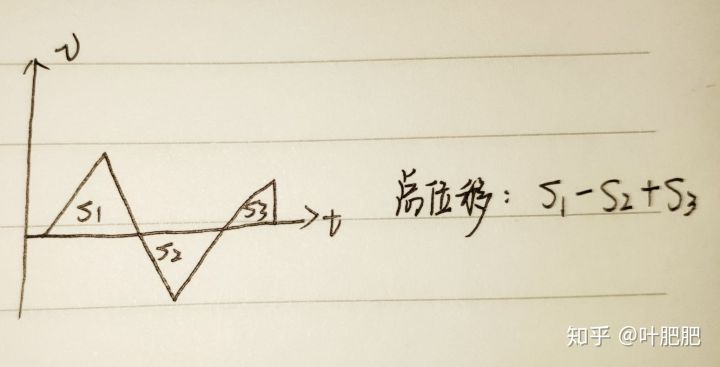 v
S1
S2
S3
t
总位移: S1-S2+S3
知乎 @叶肥肥